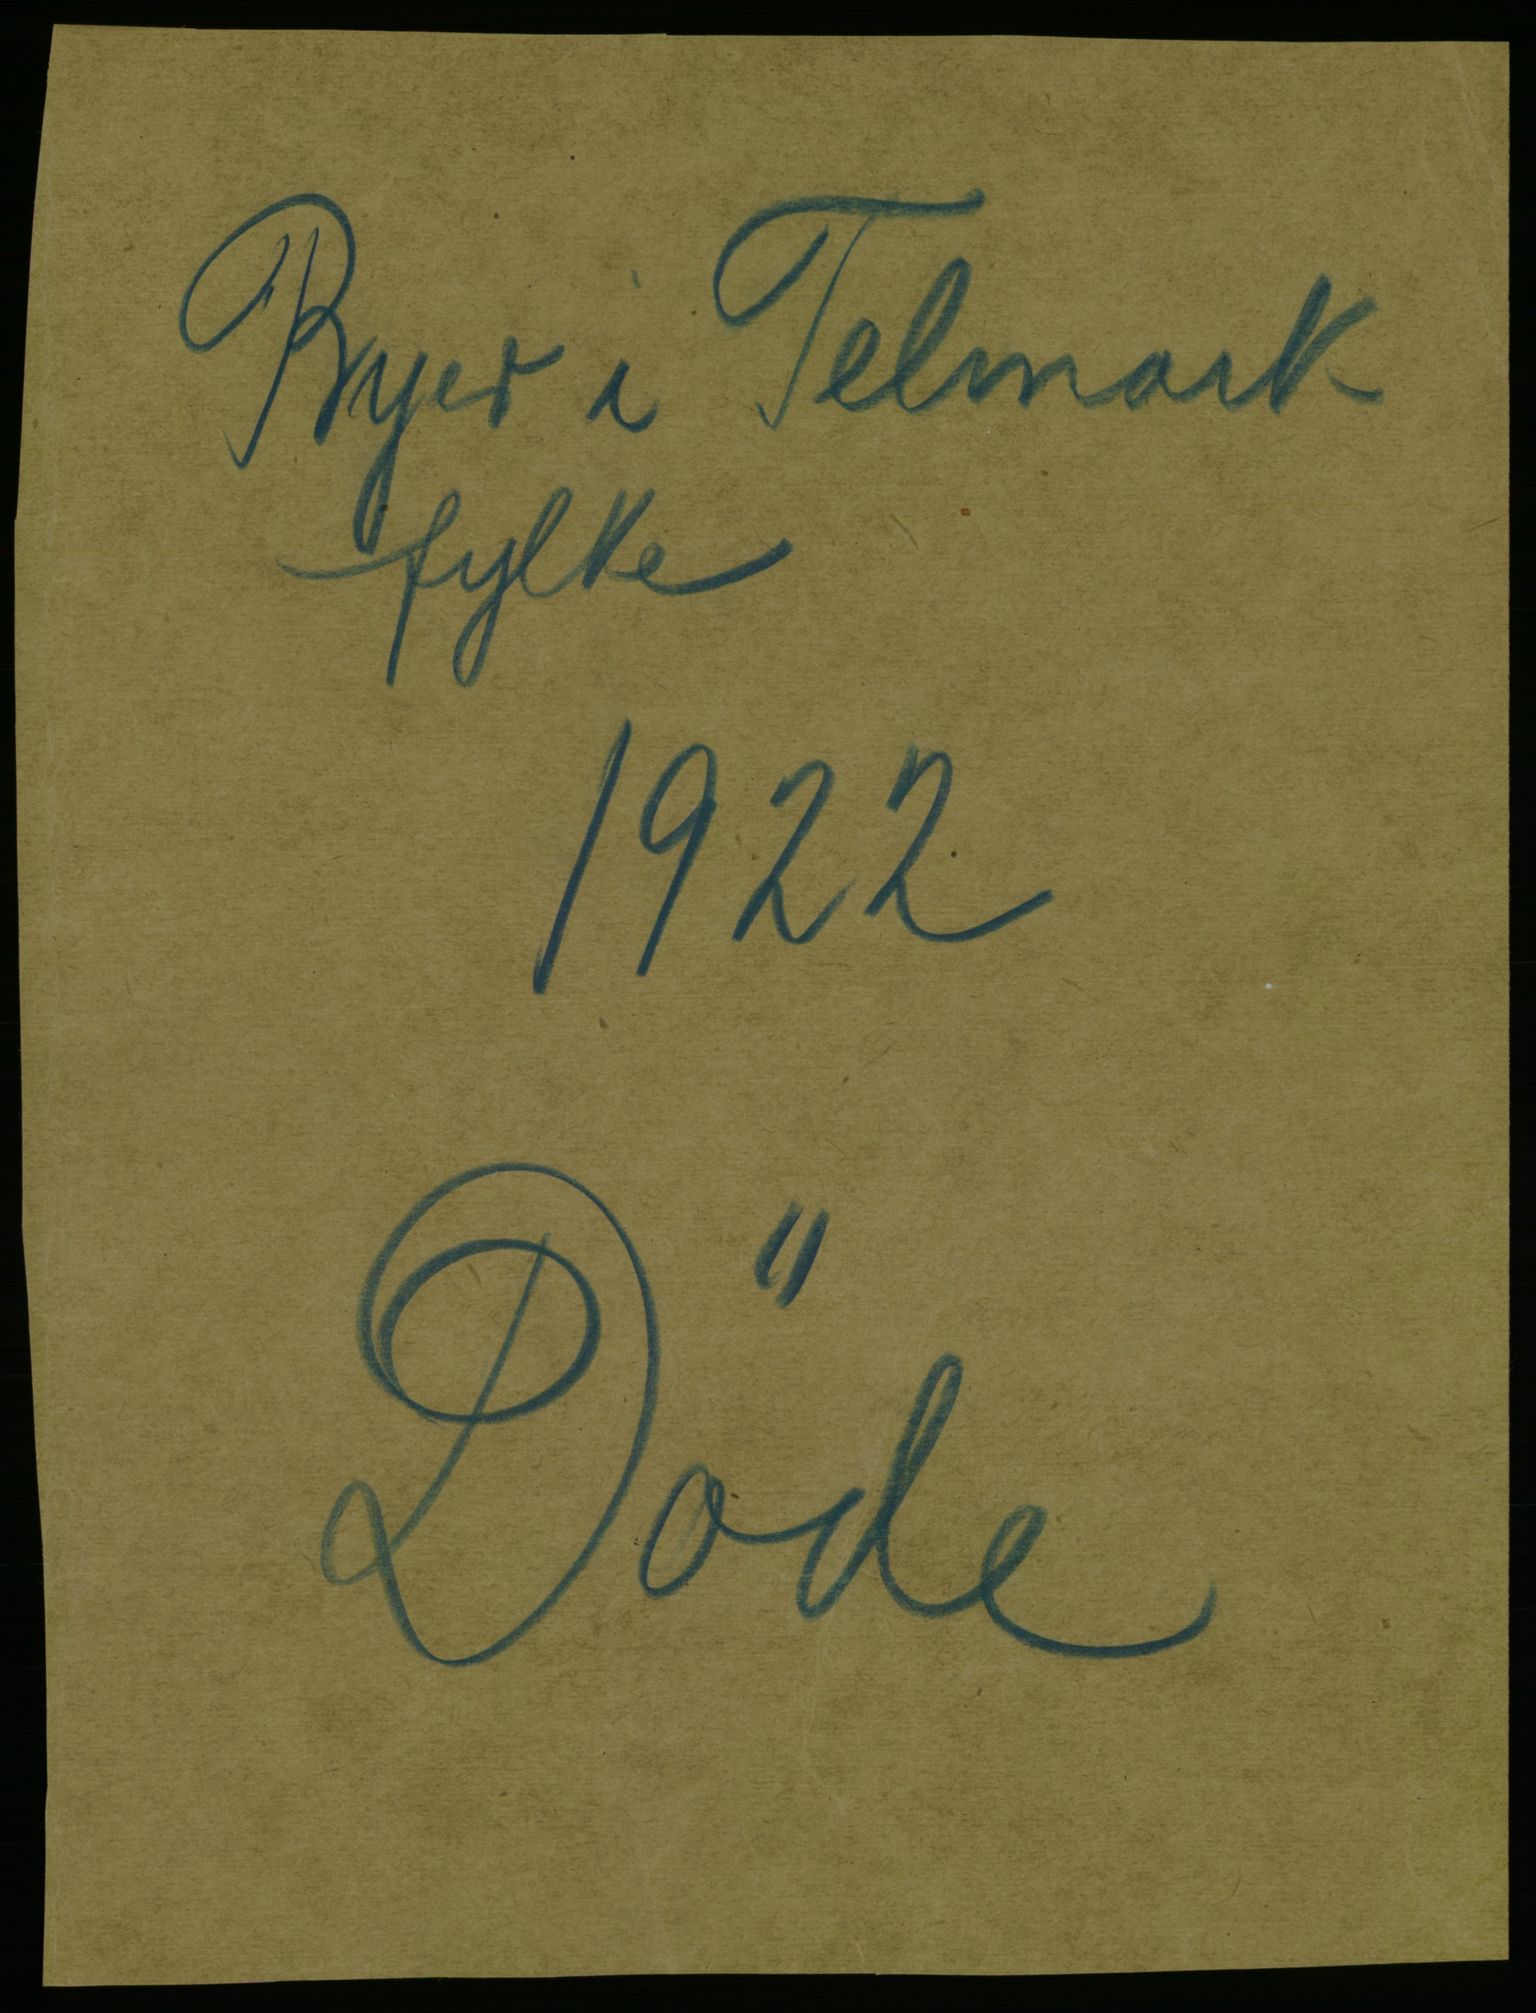 Byer i Telmark
fylke
1922
Döde